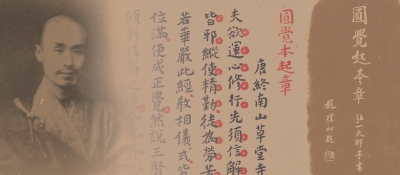 圓覺本起章 弘一大師手書
趙樸初題
圓覺本起章
唐終南山草堂寺
夫欲運心修行先須信解
皆邪縱使精勤徒為勞苦
若華嚴此經教相儀式皆
位滿便成正覺然說三